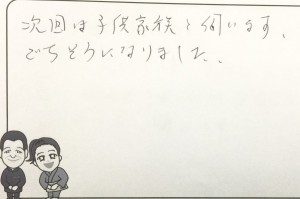 次回は子供家族と伺います、
ごちそうになりました、